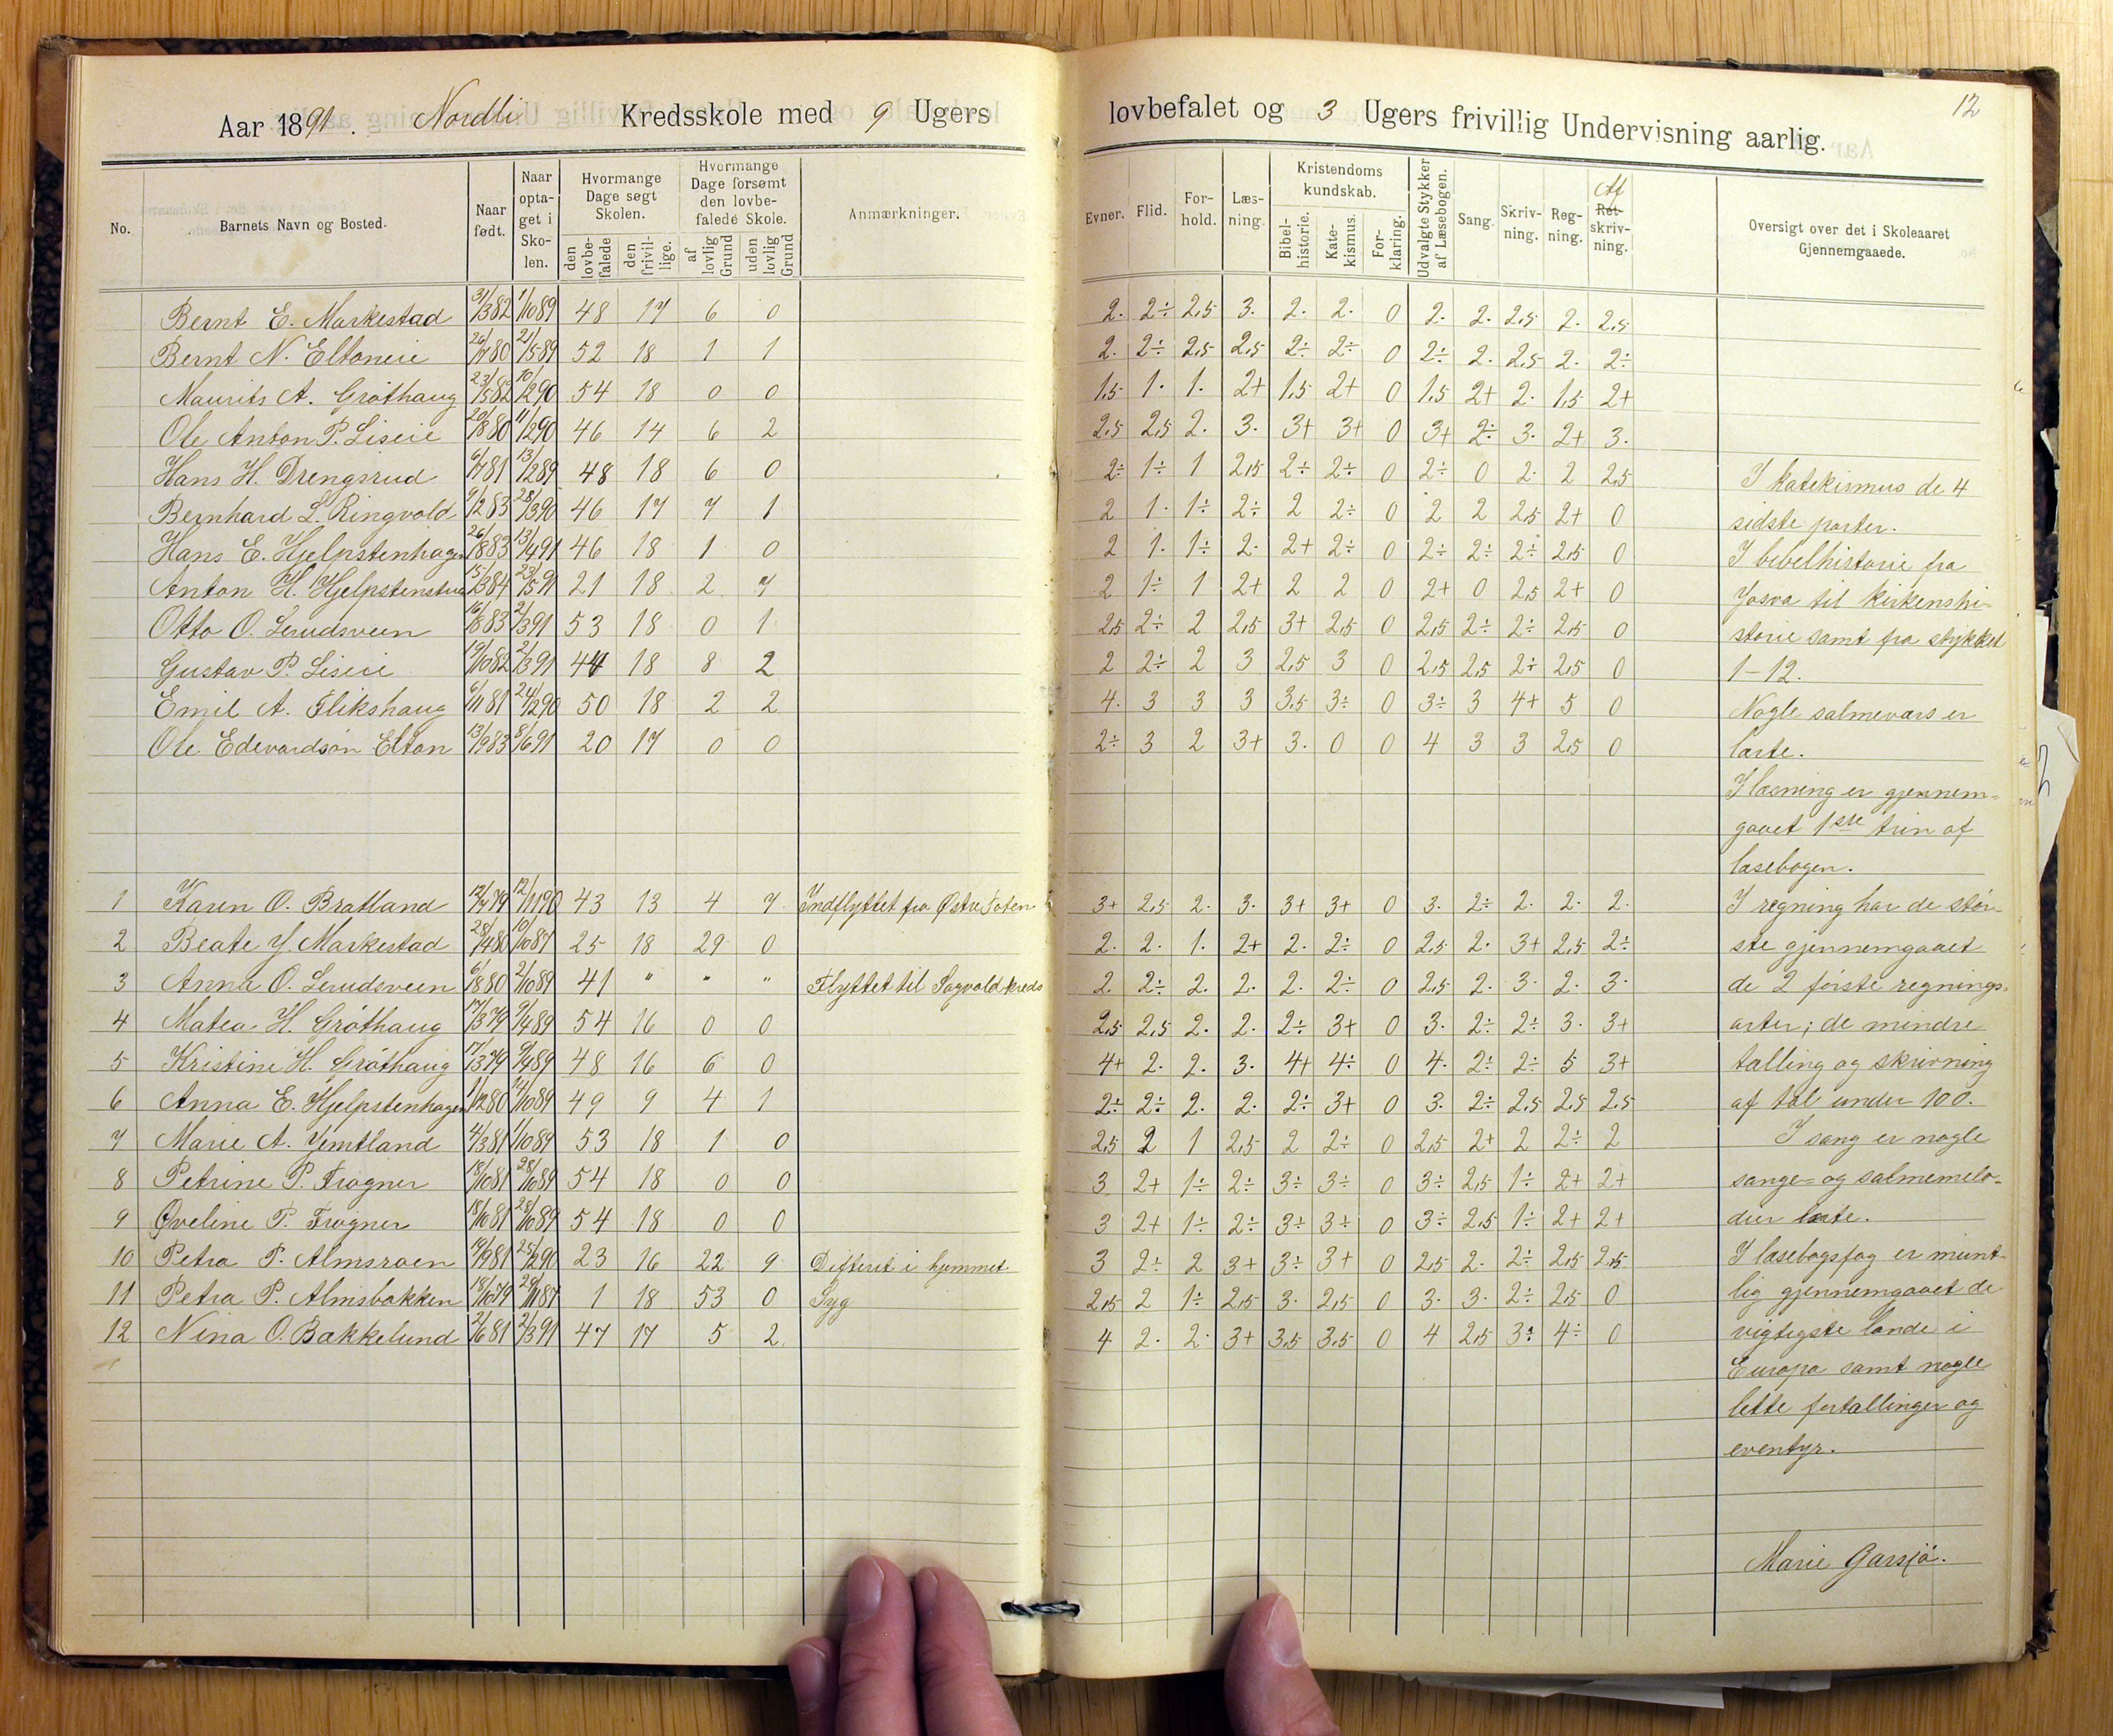 Aar 1891. Nordli Kredsskole med 9 Ugers lovbefalet og 3 Ugers frivillig Undervisning aarlig. 12
No. Barnets Navn og Bosted. Naar født. Naar optaget i Skolen. Hvormange Dage søgt Skolen. den lovbefalede den frivillige. Hvormange Dage forsømt den lovbefalede Skole. af lovlig Grund uden lovlig Grund Anmærkninger. Evner. Flid. Forhold. Læsning. Kristendomskundskab. Bibelhistorie. Katekismus. Forklaring. Udvalgte Stykker af Læsebogen. Sang. Skrivning. Regning. Af Retskrivning. Oversigt over det i Skoleaaret Gjennemgaaede.
Bernt E. Markestad 31/3 82 1/10 89 48 17 6 0 2. 2÷ 2,5 3. 2. 2. 0 2. 2. 2,5 2. 2,5
Bernt N. Eltoneie 26/7 80 21/5 89 52 18 1 1 2. 2÷ 2,5 2,5 2÷ 2÷ 0 2÷ 2. 2,5 2. 2÷
Maurits A. Gröthaug 23/5 82 10/2 90 54 18 0 0 1,5 1. 1. 2+ 1,5 2+ 0 1,5 2+ 2. 1,5 2+
Ole Anton P. Liseie 20/8 80 11/2 90 46 14 6 2 2.5 2,5 2. 3. 3+ 3+ 0 3+ 2÷ 3. 2+ 3.
Hans H. Drengsrud 6/7 81 13/2 89 48 18 6 0 2÷ 1÷ 1 2,5 2÷ 2÷ 0 2÷ 0 2. 2 2,5
Bernhard L. Ringvold 9/2 83 28/3 90 46 17 7 1 2 1. 1÷ 2÷ 2 2÷ 0 2 2 2,5 2+ 0
Hans E. Hjelpstenhagen 26/8 83 13/4 91 46 18 1 0 2 1. 1÷ 2. 2+ 2÷ 0 2÷ 2÷ 2÷ 2,5 0
Anton H. Hjelpstenstuen 15/3 84 23/5 91 21 18 2 7 2 1÷ 1 2+ 2 2 0 2+ 0 2,5 2+ 0
Otto O. Lerudsveen 16/8 83 2/3 91 53 18 0 1 2,5 2÷ 2 2,5 3+ 2,5 0 2,5 2÷ 2÷ 2,5 0
Gustav P. Liseie 19/10 82 2/3 91 44 18 8 2 2 2÷ 2 3 2,5 3 0 2,5 2,5 2÷ 2,5 0
Emil A. Flikshaug 6/11 81 24/2 90 50 18 2 2 4. 3 3 3 3,5 3÷ 0 3÷ 3 4+ 5 0
Ole Edevardsön Elton 13/9 83 8/6 91 20 17 0 0 2÷ 3 2 3+ 3. 0 0 4 3 3 2,5 0
1 Karen O. Bratland 12/4 79 12/11 90 43 13 4 7 Indflyttet fra Østre Toten 3+ 2,5 2. 3. 3+ 3+ 0 3. 2÷ 2. 2. 2.
2 Beate J. Markestad 28/4 80 10/10 87 25 18 29 0 2. 2. 1. 2+ 2. 2÷ 0 2,5 2. 3+ 2,5 2÷
3 Anna O. Lerudsveen 6/8 80 2/10 89 41 " " " Flyttet til Sagvold kreds 2. 2÷ 2. 2. 2. 2÷ 0 2,5 2. 3. 2. 3.
4 Matea H. Gröthaug 17/3 79 9/4 89 54 16 0 0 2,5 2,5 2. 2. 2÷ 3+ 0 3. 2÷ 2÷ 3. 3+
5 Kristine H. Gröthaug 17/3 79 9/4 89 48 16 6 0 4+ 2. 2. 3. 4+ 4÷ 0 4. 2÷ 2÷ 5 3+
6 Anna E. Hjelpstenhagen 1/12 80 14/10 89 49 9 4 1 2÷ 2÷ 2. 2. 2÷ 3+ 0 3. 2÷ 2,5 2,5 2,5
7 Marie A. Jemtland 4/3 81 1/10 89 53 18 1 0 2,5 2 1 2,5 2 2÷ 0 2,5 2+ 2 2÷ 2
8 Petrine P. Frogner 18/10 81 28/10 89 54 18 0 0 3 2+ 1÷ 2÷ 3÷ 3÷ 0 3÷ 2,5 1÷ 2+ 2+
9 Oveline P. Frogner 18/10 81 28/10 89 54 18 0 0 3 2+ 1÷ 2÷ 3÷ 3÷ 0 3÷ 2,5 1÷ 2+ 2+
10 Petra P. Almsroen 19/9 81 25/2 90 23 16 22 9 Difterit i hjemmet. 3 2÷ 2 3+ 3÷ 3+ 0 2,5 2. 2÷ 2,5 2,5
11 Petra P. Almsbakken 18/10 79 28/11 87 1 18 53 0 Syg 2,5 2 1÷ 2,5 3. 2,5 0 3. 3. 2÷ 2,5 0
12 Nena O. Bakkelund 2/6 81 2/3 91 47 17 5 2. 4 2. 2. 3+ 3,5 3,5 0 4 2,5 3÷ 4÷ 0
I katekismus de 4
sidste parter.
I bebelhistorie fra
Josva til kirkenshi-
storie samt fra stykket
1-12.
Nogle salmevers er
lærte.
I læsning er gjennem-
gaaet 1ste trin af
læsebogen.
I regning har de stör-
ste gjennemgaaet
de 2 förste regnings-
arter; de mindre
tælling og skrivning
af tal under 100.
I sang er nogle
sange- og salmemelo-
dier lærte.
I læsebogsfag er mundt-
lig gjennemgaaet de
vigtigste lande i
Europa samt nogle
lette fortællinger og
eventyr.
Marie Garsjö.